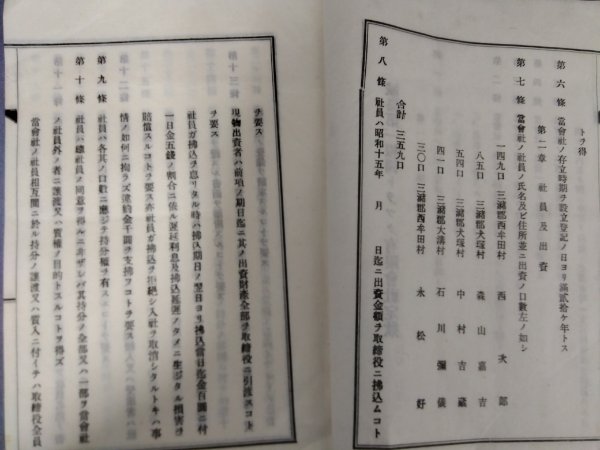 トヲ得
第六條 當會社ノ存立時期ヲ設立登記ノ日ヨリ滿貳拾ケ年トス
第二章 社員及出資
第七條 當會社ノ社員ノ氏名及ビ住所並ニ出資ノ口數左ノ如シ
一四九口 三潴郡西牟田村 西 次郎
八五口 三潴郡犬塚村 森山嘉吉
五四口 三潴郡犬塚村 中村吉藏
四一口 三潴郡大溝村 石川彌儀
三〇口 三潴郡西牟田村 永松好
合計 三五九口
第八條 社員ハ昭和十五年 月 日迄ニ出資金額ヲ取締役ニ拂込ムコト
ヲ要ス
現物出資者ハ前項ノ期日迄ニ其ノ出資財產全部ヲ取締役ニ引渡スコト
ヲ要ス
社員ガ拂込ヲ怠リタル時ハ拂込期日ノ翌日ヨリ拂込當日迄金百圓ニ付
一日金五錢ノ割合ニ依ル遲延利息及拂込遲延ノタメニ生ジタル損害ヲ
賠償スルコトヲ要ス亦社員ガ拂込ヲ拒絕シ入社ヲ取消シタルトキハ事
情ノ如何ニ拘ラズ違約金千圓ヲ支拂フコトヲ要ス
第九條 社員ハ各其ノ口數ニ應ジテ持分權ヲ有ス
第十條 社員ハ總社員ノ同意ヲ得ルニ非ザレバ其持分ノ全部又ハ一部ヲ當會社
ノ社員外ノ者ニ讓渡又ハ質權ノ目的トスルコトヲ得ズ
當會社ノ社員相互間ニ於ル持分ノ讓渡又ハ質入ニ付イテハ取締役全員